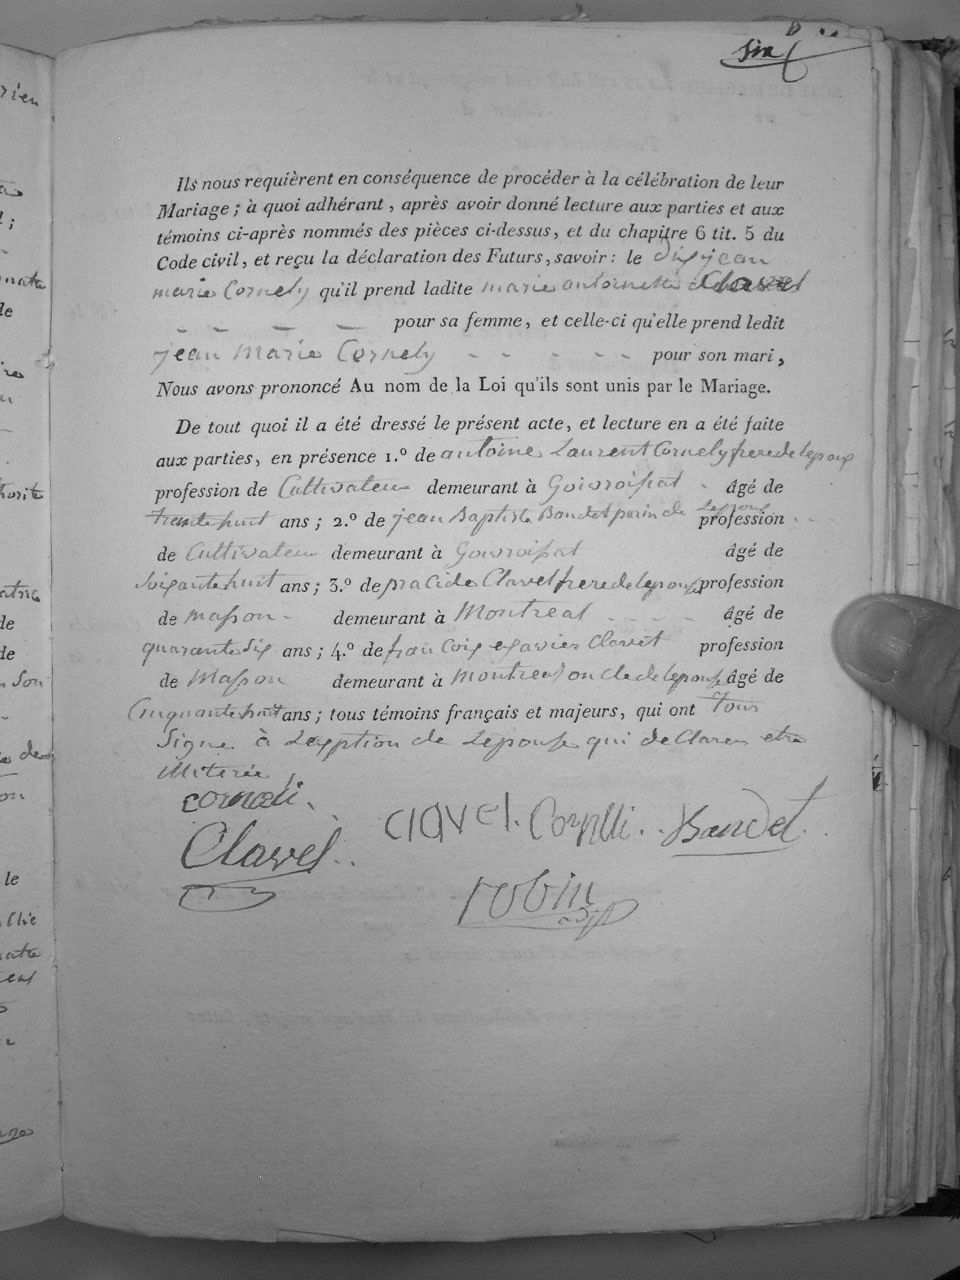 six
Ils nous requièrent en conséquence de procéder à la célébration de leur
Mariage ; à quoi adhérant, après avoir donné lecture aux parties et aux
témoins ci-après nommés des pièces ci-dessus, et du chapitre 6 tit. 5 du
Code civil, et reçu la déclaration des Futurs, savoir : le dit jean
marie Cornely qu'il prend ladite marie antoinette Clavel
pour sa femme, et celle-ci qu'elle prend ledit
jean Marie Cornely pour son mari,
Nous avons prononcé Au nom de la Loi qu'ils sont unis par le Mariage.
De tout quoi il a été dressé le présent acte, et lecture en a été faite
aux parties, en présence 1.º de antoine Laurent Cornely frere de lepoux
profession de Cultivateur demeurant à Goivroissat âgé de
trente huit ans ; 2.º de jean Baptiste Baudet parin de Lepoux profession
de Cultivateur demeurant à Govroissat âgé de
soixante huit ans ; 3.º de pracide Clavel frere de lepouse profession
de masson demeurant à Montreal âgé de
quarante six ans ; 4.º de francois exavier Clavel profession
de Masson demeurant à Montreal oncle de lepouse âgé de
Cinquante huit ans ; tous témoins français et majeurs, qui ont tous
Signe à Lexption de Lepouse qui declare etre
illiterée
cornali
Clavel. Cornelli. Baudet
Clavel
robin
adjt